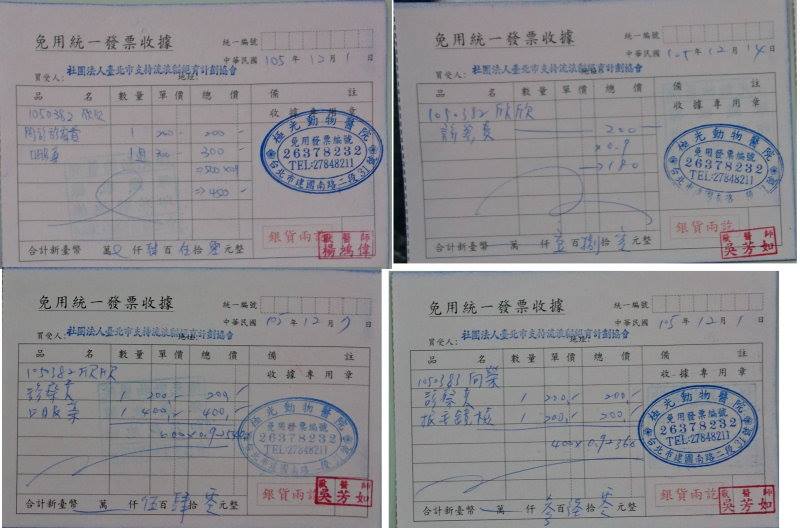 免用統一發票收據
統一編號
中華民國 105 年 12 月 1 日
買受人: 社團法人臺北市支持流浪貓絕育計劃協會
地址:
品 名 數量 單價 總價 備 註
收據專用章
1050382 欣欣
1 200 200
1週 300 300
⇒500×0.9
⇒450
極光動物醫院
免用發票編號
26378232
TEL:27848211
台北市建國南路二段31號
銀貨兩訖
獸醫師
楊鴻偉
合計新臺幣 萬 仟 肆 百 伍 拾 零 元整
免用統一發票收據
統一編號
中華民國 105 年 12 月 14 日
買受人: 社團法人臺北市支持流浪貓絕育計劃協會
地址:
品 名 數量 單價 總價 備 註
收據專用章
1050382 欣欣
診察費 200
×0.9
→180
極光動物醫院
免用發票編號
26378232
TEL:27848211
銀貨兩訖
獸醫師
吳芳如
合計新臺幣 萬 仟 壹 百 捌 拾 零 元整
免用統一發票收據
統一編號
中華民國 105 年 12 月 7 日
買受人: 社團法人臺北市支持流浪貓絕育計劃協會
地址:
品 名 數量 單價 總價 備 註
收據專用章
1050382 欣欣
診察費 1 200 200
口服藥 1 400 400
600×0.9=540
極光動物醫院
免用發票編號
26378232
TEL:27848211
銀貨兩訖
獸醫師
吳芳如
合計新臺幣 萬 仟 伍 百 肆 拾 零 元整
免用統一發票收據
統一編號
中華民國 105 年 12 月 1 日
買受人: 社團法人臺北市支持流浪貓絕育計劃協會
地址:
品 名 數量 單價 總價 備 註
收據專用章
1050383
診察費 1 200 200
1 200 200
400×0.9=360
極光動物醫院
免用發票編號
26378232
TEL:27848211
台北市建國南路二段31號
銀貨兩訖
獸醫師
吳芳如
合計新臺幣 萬 仟 叁 百 陸 拾 零 元整